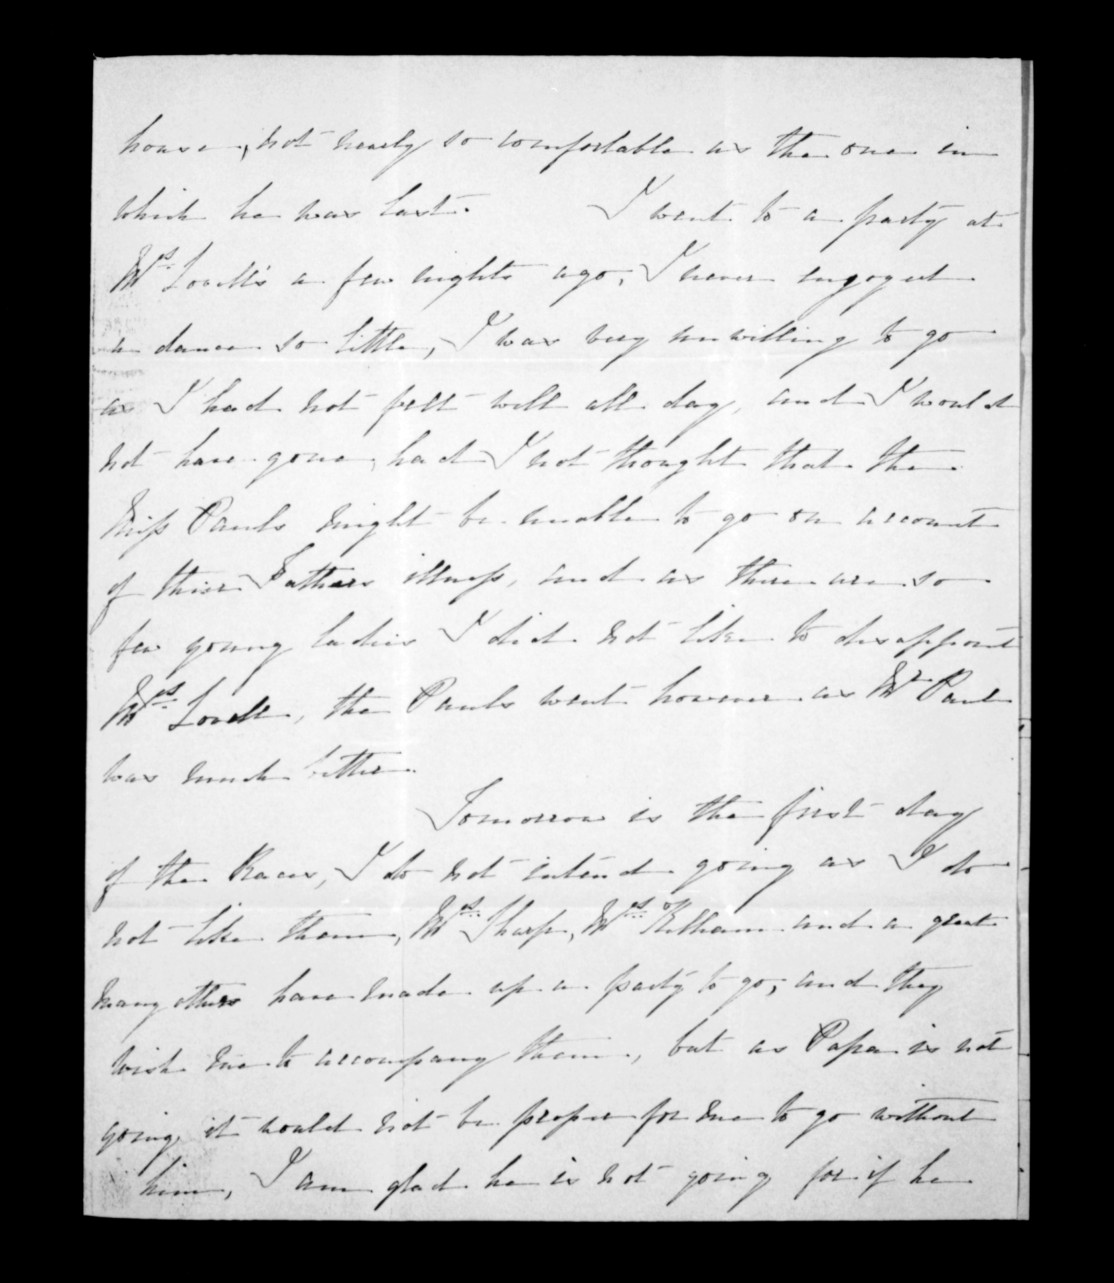 house, not nearly so comfortable as the one in
which he was last. I went to a party at
Mrs. Lovell's a few nights ago, I never enjoyed
a dance so little, I was very unwilling to go
as I had not felt well all day, and I would
not have gone, had I not thought that the
Miss Pauls might be unable to go on account
of their Fathers illness, and as there are so
few young ladies I did not like to disappoint
Mrs. Lovell, the Pauls went however as Mr Paul
was much better.
Tomorrow is the first day
of the Races, I do not intend going as I do
not like them, Mrs. Sharp, Mrs. and a great
many others have made up a party to go, and they
wish me to accompany them, but as Papa is not
going it would not be proper for me to go without
him, I am glad he is not going for if he